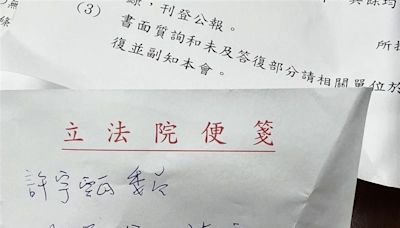 錄，刊登公報。
(3) 書面質詢和未及答復部分請相關單位於
復並副知本會。
立法院便箋
許宇甄委員